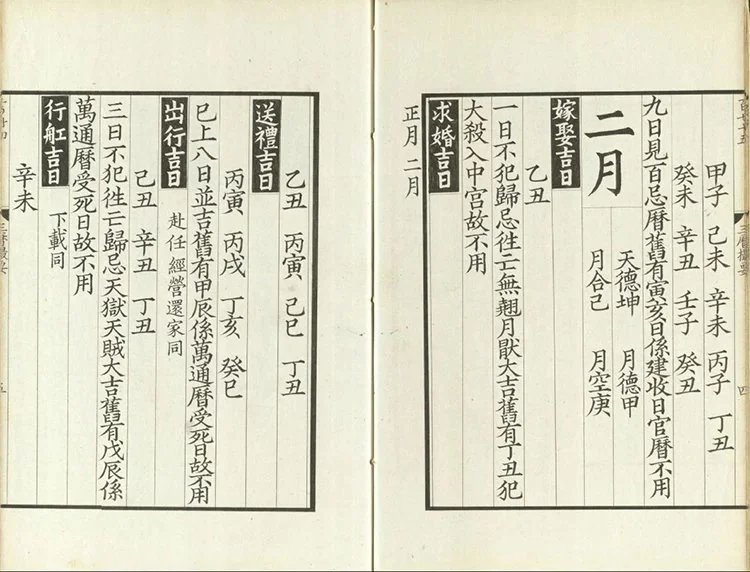 甲子 己未 辛未 丙子 丁丑
癸未 辛丑 壬子 癸丑
九日見百忌曆舊有寅亥日係建收日官曆不用
二月
天德坤 月德甲
月合己 月空庚
嫁娶吉日
乙丑
一日不犯歸忌徃亡無翹月厭大吉舊有丁丑犯
大殺入中宫故不用
求婚吉日
正月 二月
乙丑 丙寅 己巳 丁丑
送禮吉日
丙寅 丙戌 丁亥 癸巳
巳上八日並吉舊有甲辰係萬通曆受死日故不用
出行吉日
赴任經營還家同
己丑 辛丑 丁丑
三日不犯徃亡歸忌天獄天賊大吉舊有戊辰係
萬通曆受死日故不用
行舡吉日
下載同
辛未
三曆撮要
四
三曆撮要
五